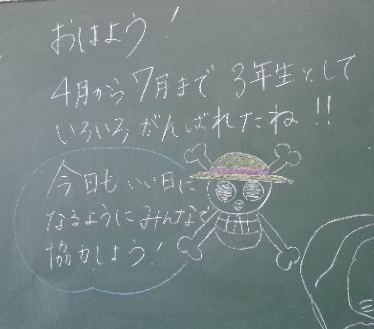 おはよう!
4月から7月まで 3年生として
いろいろがんばれたね!!
今日もいい日に
なるようにみんなで
協力しよう!